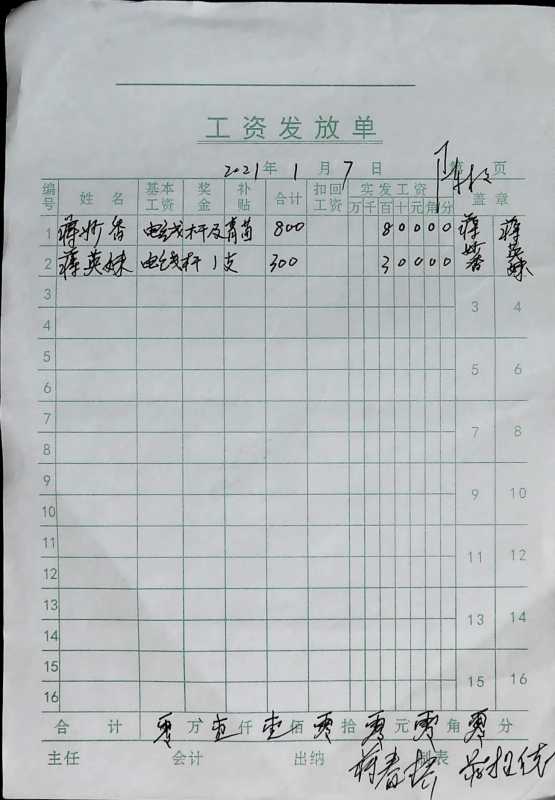 工资发放单
2021年 1 月 7 日 第 页
编号 姓名 基本工资 奖金 补贴 合计 扣回工资 实发工资 万千百十元角分 盖章
1 蒋 香 电线杆及青苗 800 80000 蒋 香
2 蒋英妹 电线杆1支 300 30000 蒋英妹
3 3 4
4
5 5 6
6
7 7 8
8
9 9 10
10
11 11 12
12
13 13 14
14
15 15 16
16
合计 零万壹仟壹佰零拾零元零角零分
主任 会计 出纳 制表
蒋春